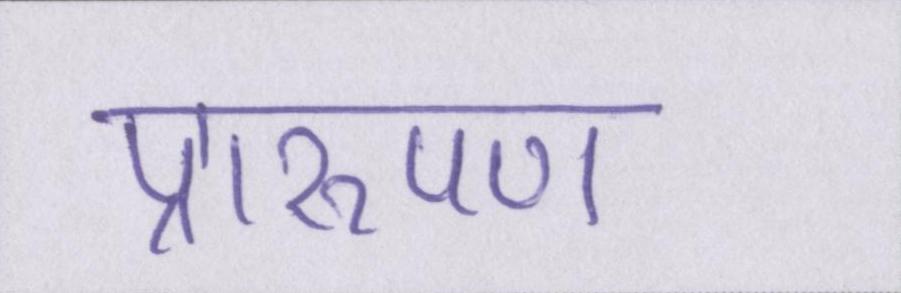 प्रारूपण